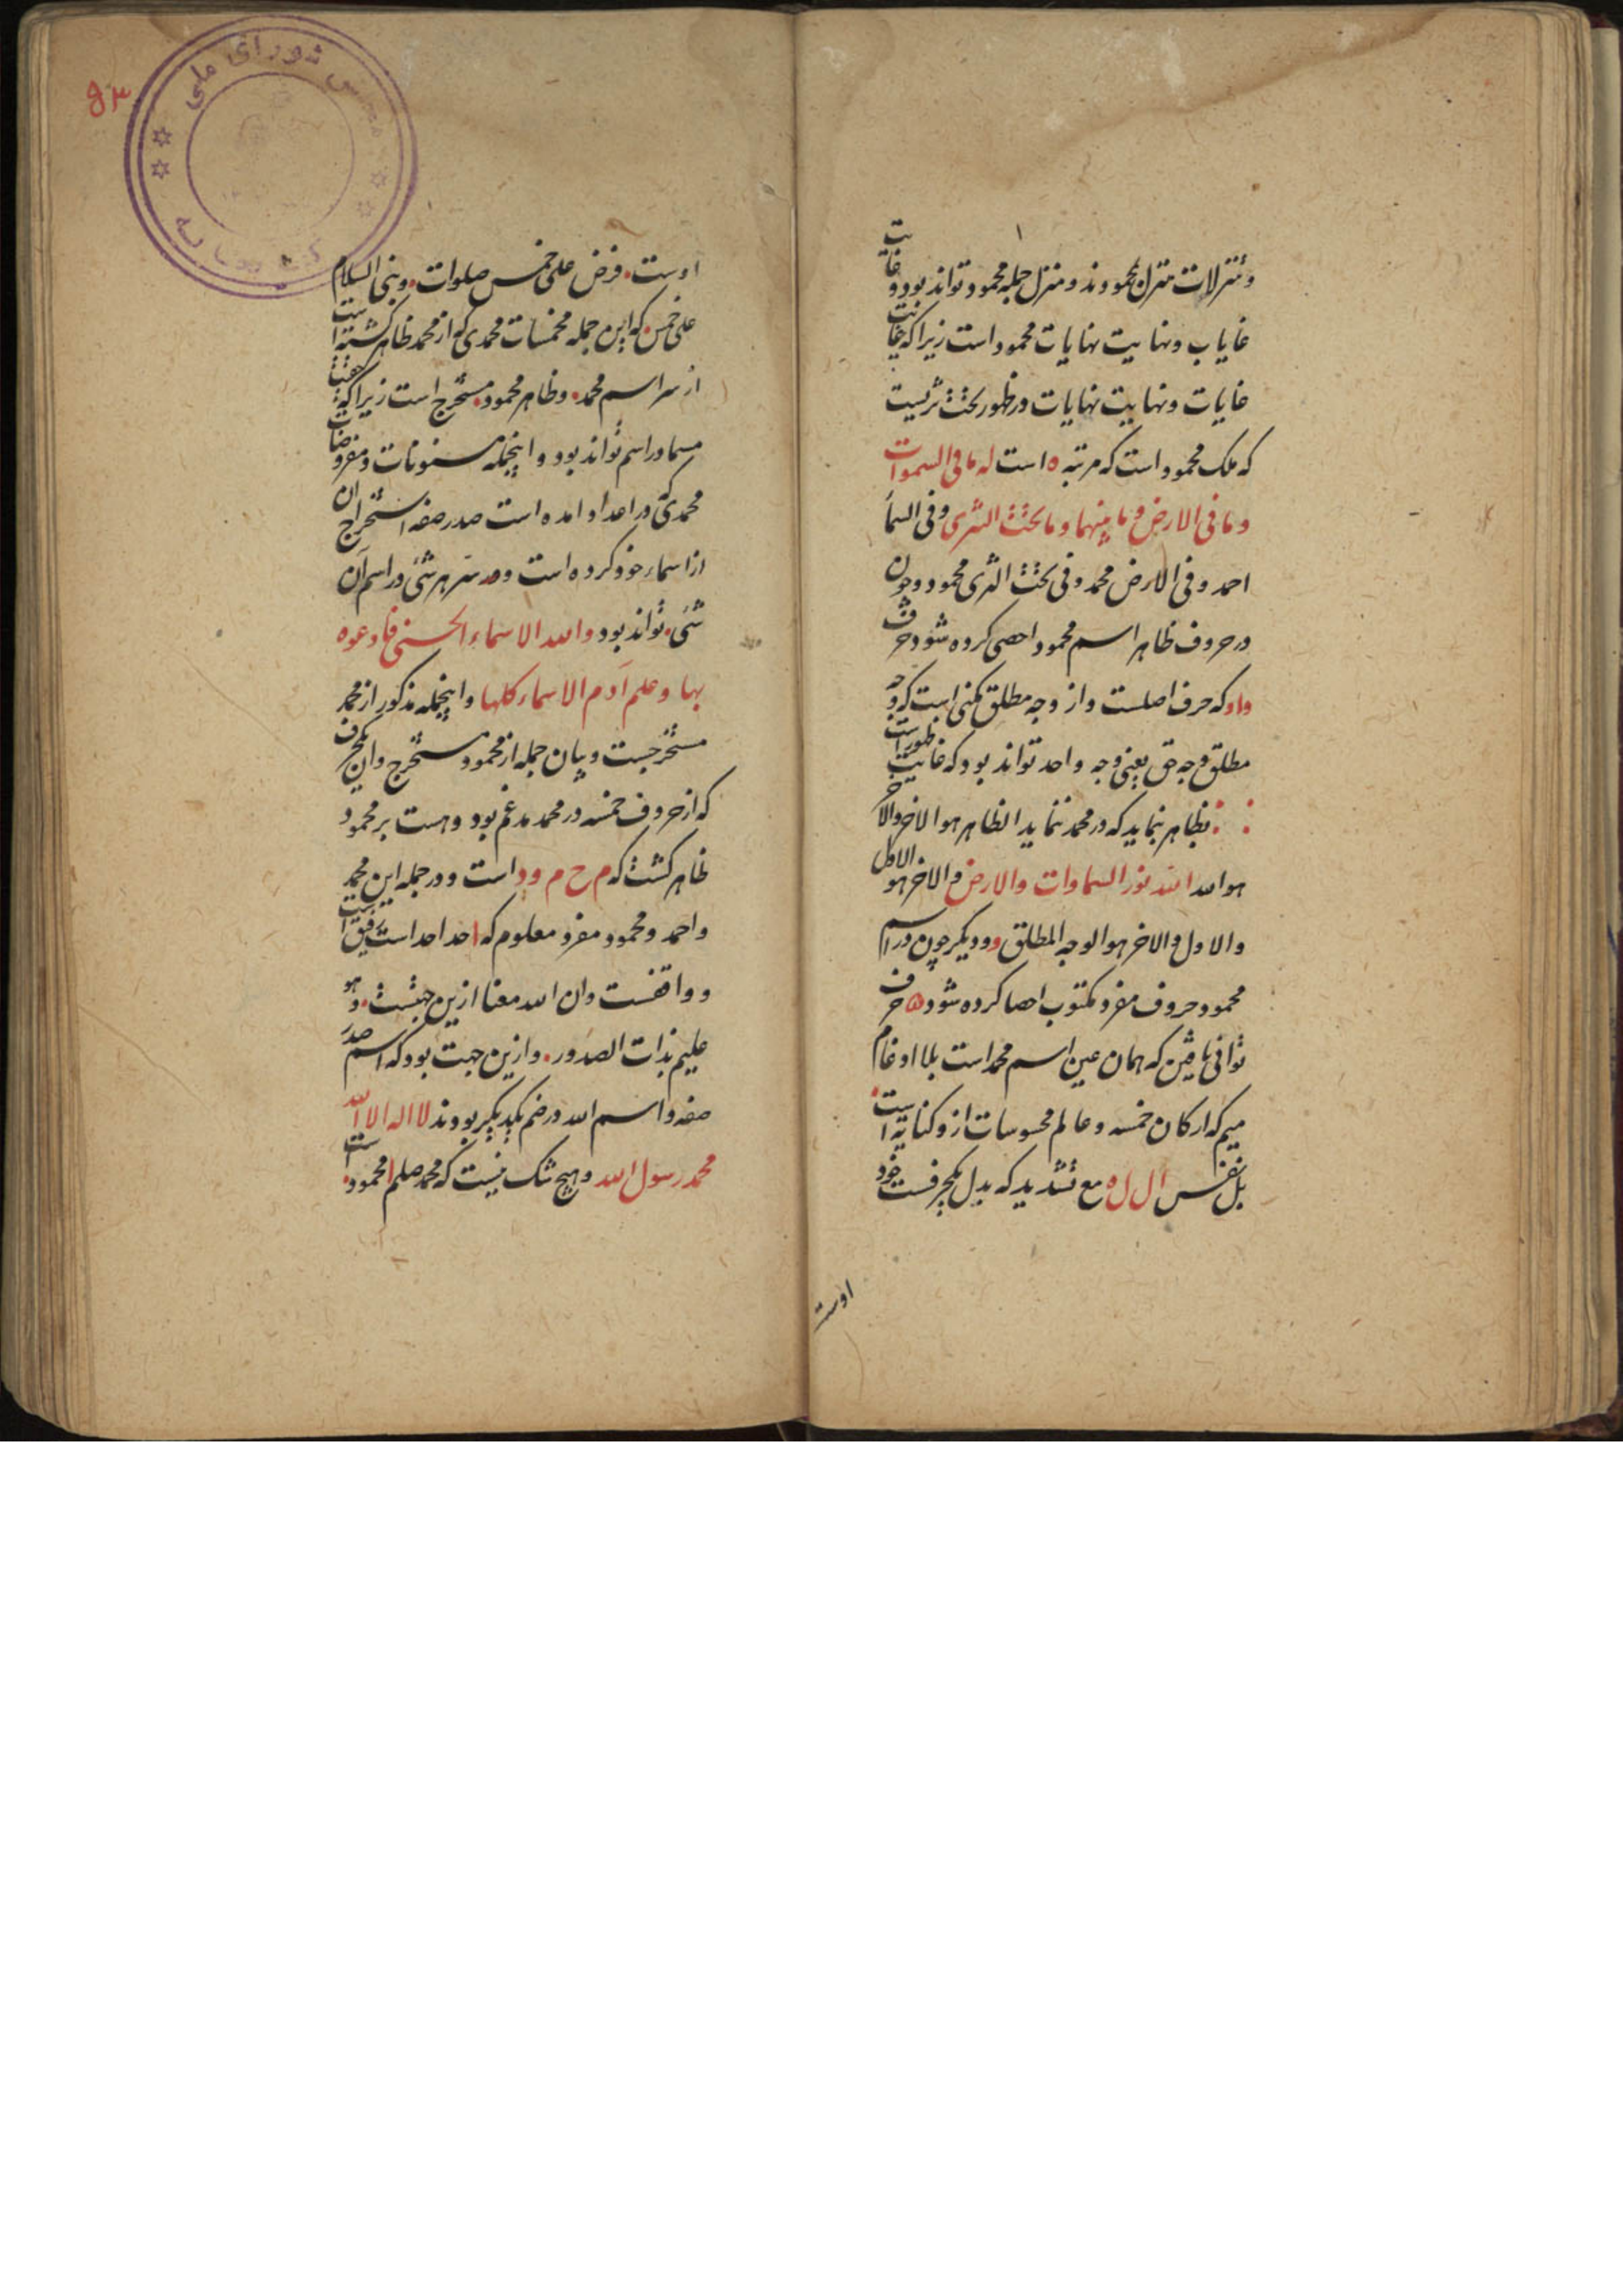 وتنزلات متنزل بمحمودند ومنزل جمله محمود تواند بود وغایت
غایات ونهایت نهایات محمود است زیرا که غایت
غایات ونهایت نهایات در ظهور تحت ثریست
که ملک محمود است که مرتبه ه است له ما فی السموات
وما فی الارض وما بینهما وما تحت الثری وفی السما
احمد وفی الارض محمد وفی تحت الثری محمود وچون
در حروف ظاهر اسم محمود احصی کرده شود حرف
واو که حرف اصلست واز وجه مطلق مکنی است که وجه
مطلق وجه حق یعنی وجه واحد تواند بود که غایت ظهور است
بظاهر بنماید که در محمد ننماید الظاهر هو الاخر والاخر
هو الله الله نور السماوات والارض والاخر هو الاول
والاول والاخر هو الوجه المطلق ودیکر چون در اسم
محمود حروف مفرد مکتوب احصا کرده شود ۵ حرف
توافی یافتن که همان عین اسم محمد است بلا ادغام
میم که ارکان خمسه وعالم محسوسات ازو کنایه است
بل نفس ال ل ه مع تشدید که بدل یکحرفست خود
اوست
۹۳
شورای ملی
اوست فرض علی خمس صلوات وبنی السلام
علی خمس که این جمله مخمسات محمدی که از محمد ظاهر کشته است
از سر اسم محمد وظاهر محمود مستخرج است زیرا که
مسما در اسم تواند بود واینجمله مسنونات ومفروضات
محمدی که در اعداد امده است صدر صفه استخراج ان
از اسماء خود کرده است ودر سر هر شئ در اسم آن
شئ تواند بود ولله الاسماء الحسنی فادعوه
بها وعلم آدم الاسماء کلها واینجمله مذکور از محمد
مستخرجست وبیان جمله از محمود مستخرج وان یکحرف
که از حروف خمسه در محمد مدغم بود وهست بر محمود
ظاهر کشت که م ح م ود است ودر جمله این محمد
واحمد ومحمود مفرد معلوم که احد احد است رفیق است
وواقفست وان الله معنا ازین جهتست وهو
علیم بذات الصدور وازین جهت بود که اسم صدر
صفه واسم الله در ضم یکدیکر بودند لا اله الا الله
محمد رسول الله وهیچ شک نیست که محمد صلم محمود است